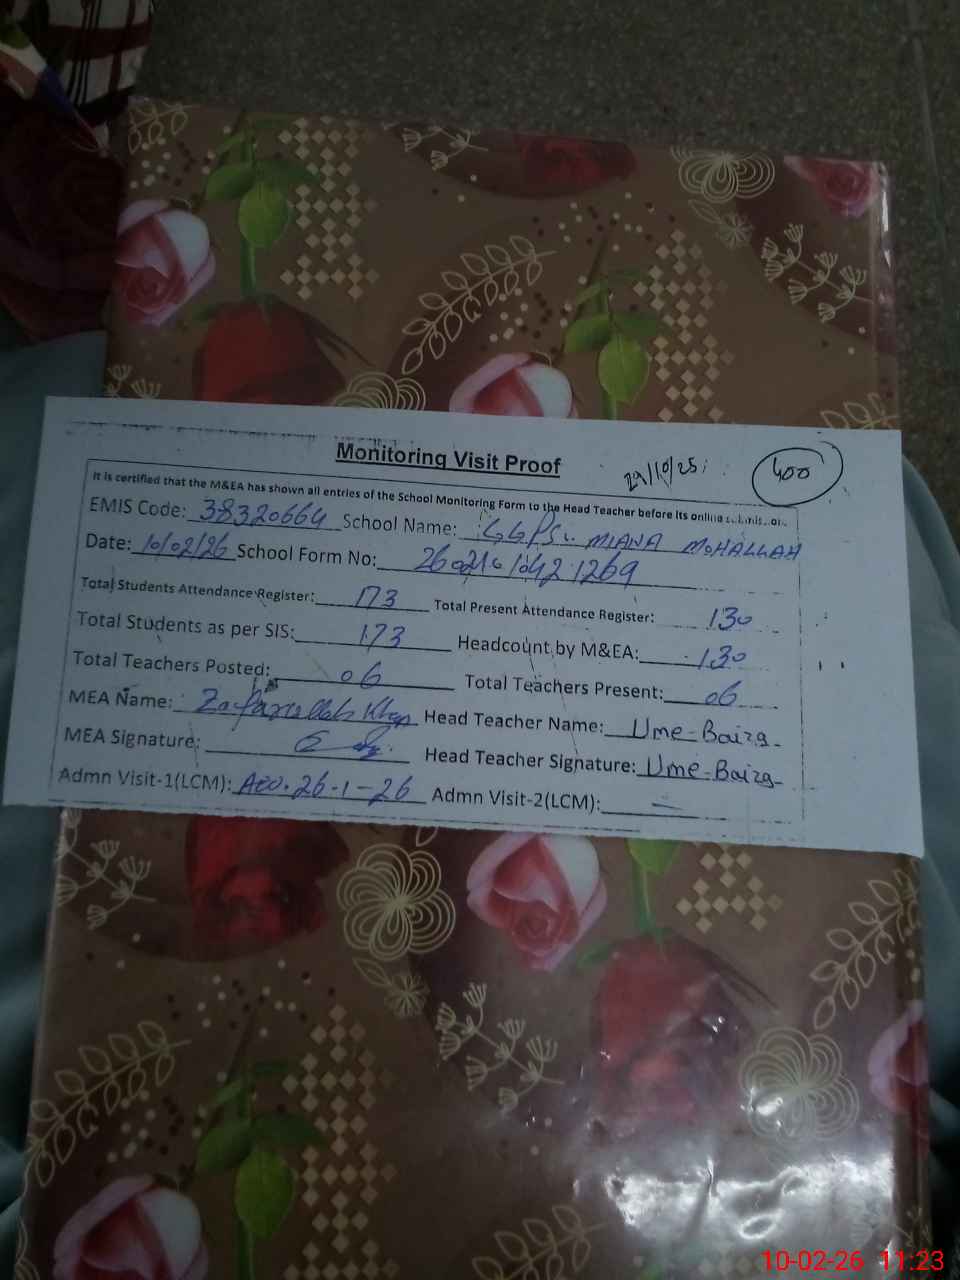 Monitoring Visit Proof 29/10/25 400
It is certified that the M&EA has shown all entries of the School Monitoring Form to the Head Teacher before its online
EMIS Code: 38320664 School Name: GGPS MIANA MOHALLAH
Date: 10/02/26 School Form No:
Total Students Attendance Register: 173 Total Present Attendance Register: 130
Total Students as per SIS: 173 Headcount by M&EA: 130
Total Teachers Posted: 06 Total Teachers Present: 06
MEA Name: Zafarullah Khan Head Teacher Name: Ume-Baiza
MEA Signature: Head Teacher Signature: Ume-Baiza
Admn Visit-1(LCM): AEO. 26-1-26 Admn Visit-2(LCM): —
10-02-26 11:23